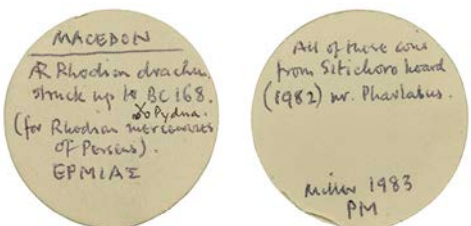 MACEDON
AR Rhodian drachm.
struck up to BC 168.
Pydna.
(for Rhodian mercenaries
of Perseus).
ΕΡΜΙΑΣ
All of these come
from Sitichoro hoard
(1982) nr. Pharsalus.
Miller 1983
PM